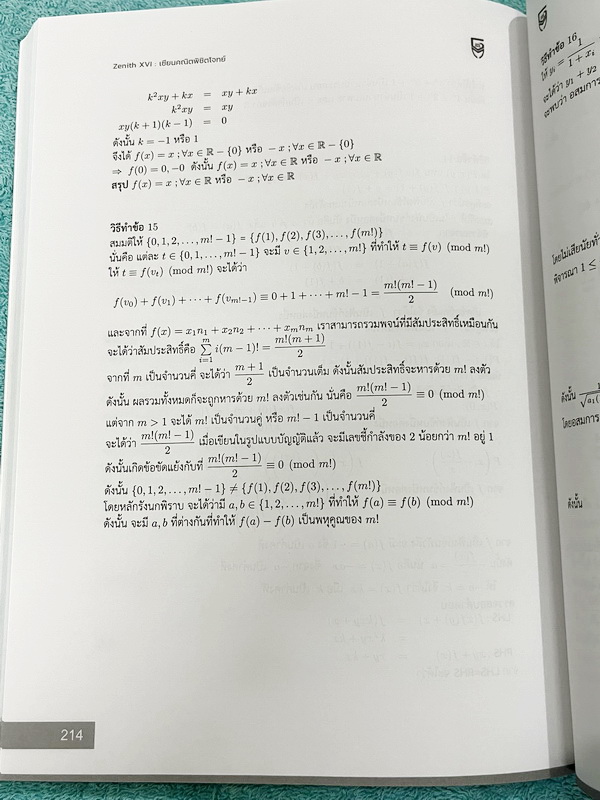 Zenith XVI : เซียนคณิตพิชิตโจทย์
k²xy + kx = xy + kx
k²xy = xy
xy(k + 1)(k − 1) = 0
ดังนั้น k = −1 หรือ 1
จึงได้ f(x) = x ; ∀x ∈ ℝ − {0} หรือ − x ; ∀x ∈ ℝ − {0}
⇒ f(0) = 0, −0 ดังนั้น f(x) = x ; ∀x ∈ ℝ หรือ − x ; ∀x ∈ ℝ
สรุป f(x) = x ; ∀x ∈ ℝ หรือ − x ; ∀x ∈ ℝ
วิธีทำข้อ 15
สมมติให้ {0, 1, 2, . . . , m! − 1} = {f(1), f(2), f(3), . . . , f(m!)}
นั่นคือ แต่ละ t ∈ {0, 1, . . . , m! − 1} จะมี v ∈ {1, 2, . . . , m!} ที่ทำให้ t ≡ f(v) (mod m!)
ให้ t ≡ f(vₜ) (mod m!) จะได้ว่า
f(v₀) + f(v₁) + · · · + f(v_{m!−1}) ≡ 0 + 1 + · · · + m! − 1 = m!(m! − 1)/2 (mod m!)
และจากที่ f(x) = x₁n₁ + x₂n₂ + · · · + xₘnₘ เราสามารถรวมพจน์ที่มีสัมประสิทธิ์เหมือนกัน
จะได้ว่าสัมประสิทธิ์คือ ∑_{i=1}^{m} i(m − 1)! = m!(m + 1)/2
จากที่ m เป็นจำนวนคี่ จะได้ว่า (m + 1)/2 เป็นจำนวนเต็ม ดังนั้นสัมประสิทธิ์จะหารด้วย m! ลงตัว
ดังนั้น ผลรวมทั้งหมดก็จะถูกหารด้วย m! ลงตัวเช่นกัน นั่นคือ m!(m! − 1)/2 ≡ 0 (mod m!)
แต่จาก m > 1 จะได้ m! เป็นจำนวนคู่ หรือ m! − 1 เป็นจำนวนคี่
จะได้ว่า m!(m! − 1)/2 เมื่อเขียนในรูปแบบบัญญัติแล้ว จะมีเลขชี้กำลังของ 2 น้อยกว่า m! อยู่ 1
ดังนั้นเกิดข้อขัดแย้งกับที่ m!(m! − 1)/2 ≡ 0 (mod m!)
ดังนั้น {0, 1, 2, . . . , m! − 1} ≠ {f(1), f(2), f(3), . . . , f(m!)}
โดยหลักรังนกพิราบ จะได้ว่ามี a, b ∈ {1, 2, . . . , m!} ที่ทำให้ f(a) ≡ f(b) (mod m!)
ดังนั้น จะมี a, b ที่ต่างกันที่ทำให้ f(a) − f(b) เป็นพหุคูณของ m!
214
วิธีทำข้อ 16
ให้ yᵢ = 1/(1 + xᵢ
จะได้ว่า y₁ + y₂
จะพบว่า อสมการ
โดยไม่เสียนัยทั่ว
พิจารณา 1 ≤
ดังนั้น
โดยอสมการ
ดังนั้น